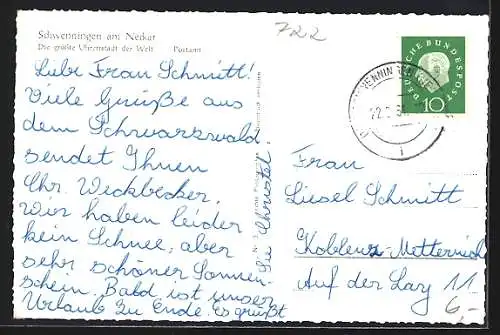 Schwenningen am Neckar
Die größte Uhrenstadt der Welt Postamt
722
Liebe Frau Schmitt!
Viele Grüße aus
dem Schwarzwald
sendet Ihnen
Chr. Weckbecker.
Wir haben leider
kein Schnee, aber
sehr schöner Sonnen-
schein. Bald ist unser
Urlaub zu Ende. es grüßt
Sie Christel.
DEUTSCHE BUNDESPOST
10
Frau
Liesel Schmitt
Koblenz-Metternich
Auf der Lay 11
6,-